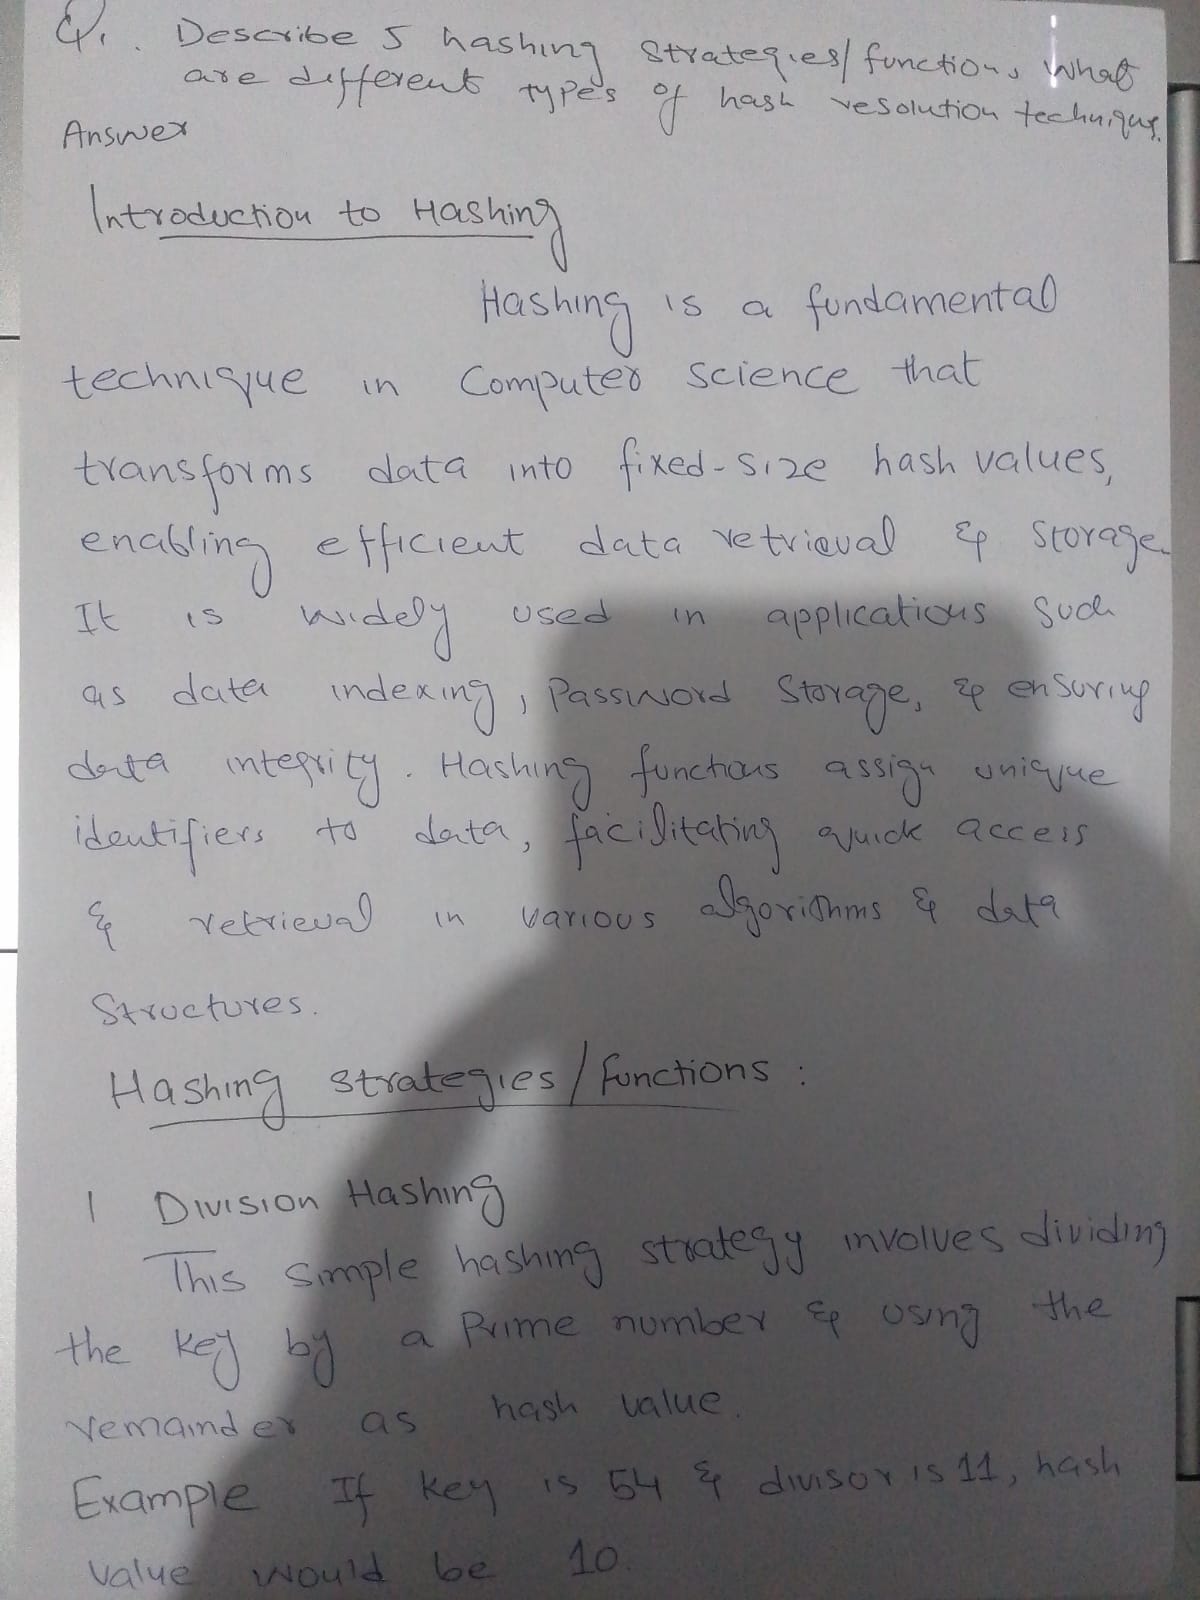 Q1. Describe 5 hashing strategies/functions what
are different types of hash resolution technique.
Answer
Introduction to Hashing
Hashing is a fundamental
technique in Computer science that
transforms data into fixed-size hash values,
enabling efficient data retrieval & storage.
It is widely used in applications such
as data indexing, Password Storage, & ensuring
data integrity. Hashing functions assign unique
identifiers to data, facilitating quick access
& retrieval in various algorithms & data
Structures.
Hashing strategies/functions :
1 Division Hashing
This simple hashing strategy involves dividing
the key by a Prime number & using the
remainder as hash value.
Example If key is 54 & divisor is 11, hash
value would be 10.